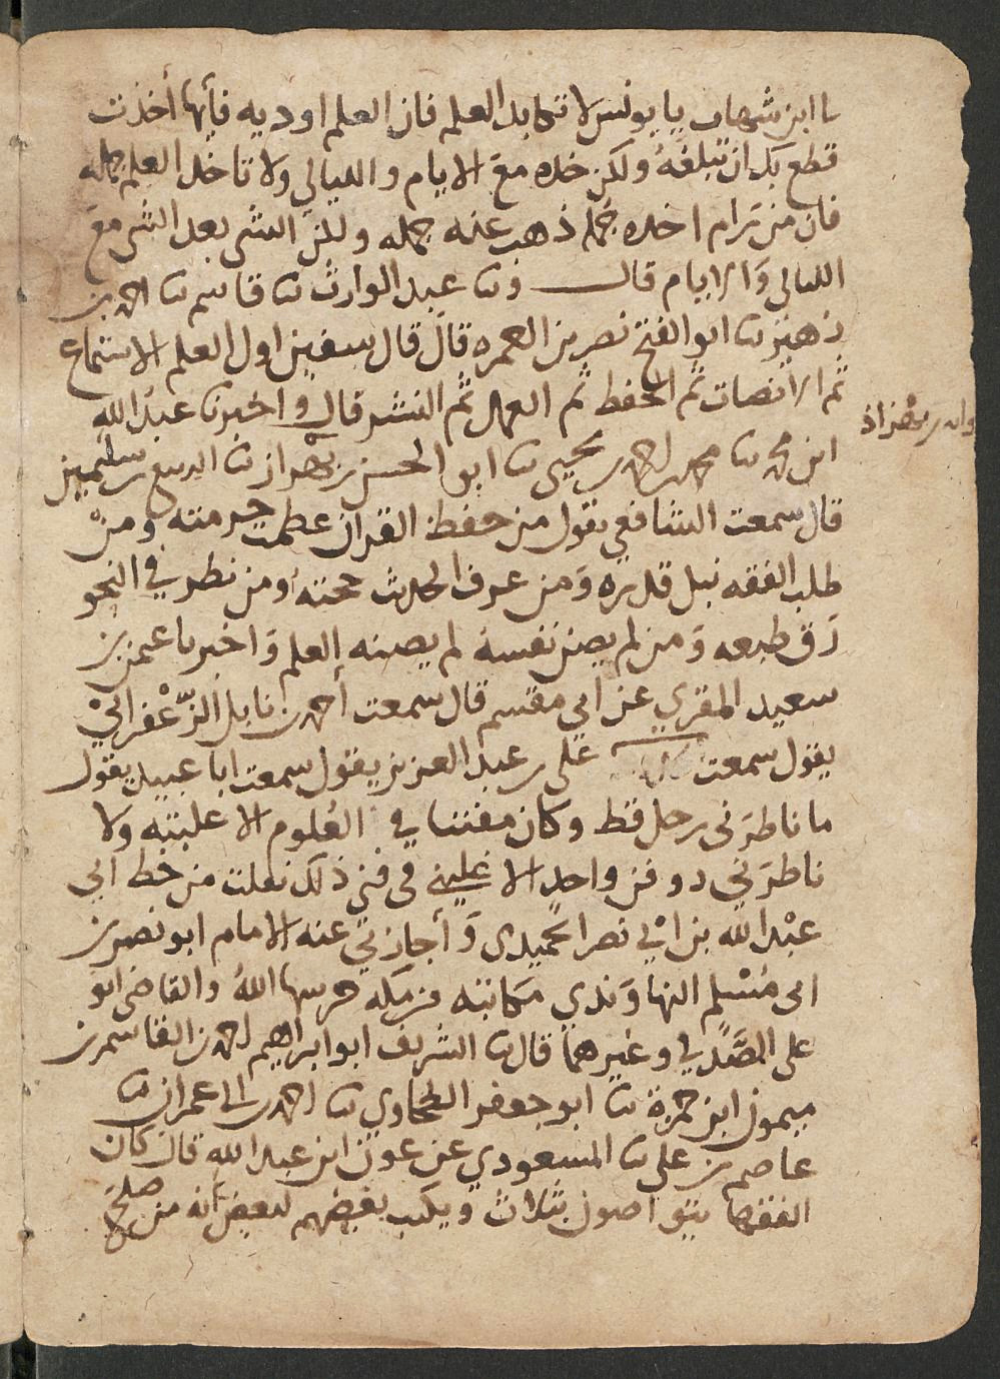 ىا ابن شهاب يا يونس لا تكابد العلم فان العلم اوديه فأيها أخذت
قطع بك ان تبلغهُ ولكن خذه معَ الايام والليالي ولا تاخذ العلم جمله
فان من رام اخذه جُملة ذهب عنه جمله ولكن الشى بعد الشى معَ
الليالى وَالايام قال وىا عبد الوارث ىا قاسم ىا احمد بن
زهير ىا ابو الفتح نصر بن المغيره قال قال سفين اول العلم الاستماع
ثم الانصات ثم الحفظ ثم العمل ثم النشر قال واخبرىا عبد الله
ابن محمد ىا محمد بن احمد بن يحيى ىا ابو الحسن بن بهْزاذ ىا الربيع بن سليمين
قال سمعت الشافعي يقول من حفظ القران عظمت حرمته ومنْ
طلب الفقه نبل قدره وَمن عرف الحديث قويت حجتهُ ومن نظر في النحو
رَق طبعه وَمن لم يصن نفسهُ لم يصنه العلم وَاخبرىا عمر بن
سعيد المقري عن ابي مقسم قال سمعت أحمد بن نابل الزّعْفرانيْ
يقول سمعت علي بن عبد العزيز يقول سمعت ابا عبيد يقول
ما ناظرَنى رجل قط وكان مفننا في العُلوم الا غلبته ولا
ناظرَني ذو فن واحدٍ الا غلبني في فنه ذلك نقلت من خط ابي
عبْد الله بن ابْي نصر الحُميدى وَأجازني عنه الامام ابو نصر بن
ابى مُسْلم النهاوَندي مكاتبه من مكه حرسها اللهُ والقاضى ابو
على الصَّدفي وغيرهما قال ىا الشريف ابو ابراهيم احمد بن القاسم بن
ميمون ابن حمزة ىا ابو جعفر الطحاوي ىا احمد بن ابى عمران ىا
عاصم بن علي ىا المسعودي عن عون ابن عبد الله قال كان
الفقها يتواصون بثلاث ويكتب بعضهم لبعض أنه من صلحَ